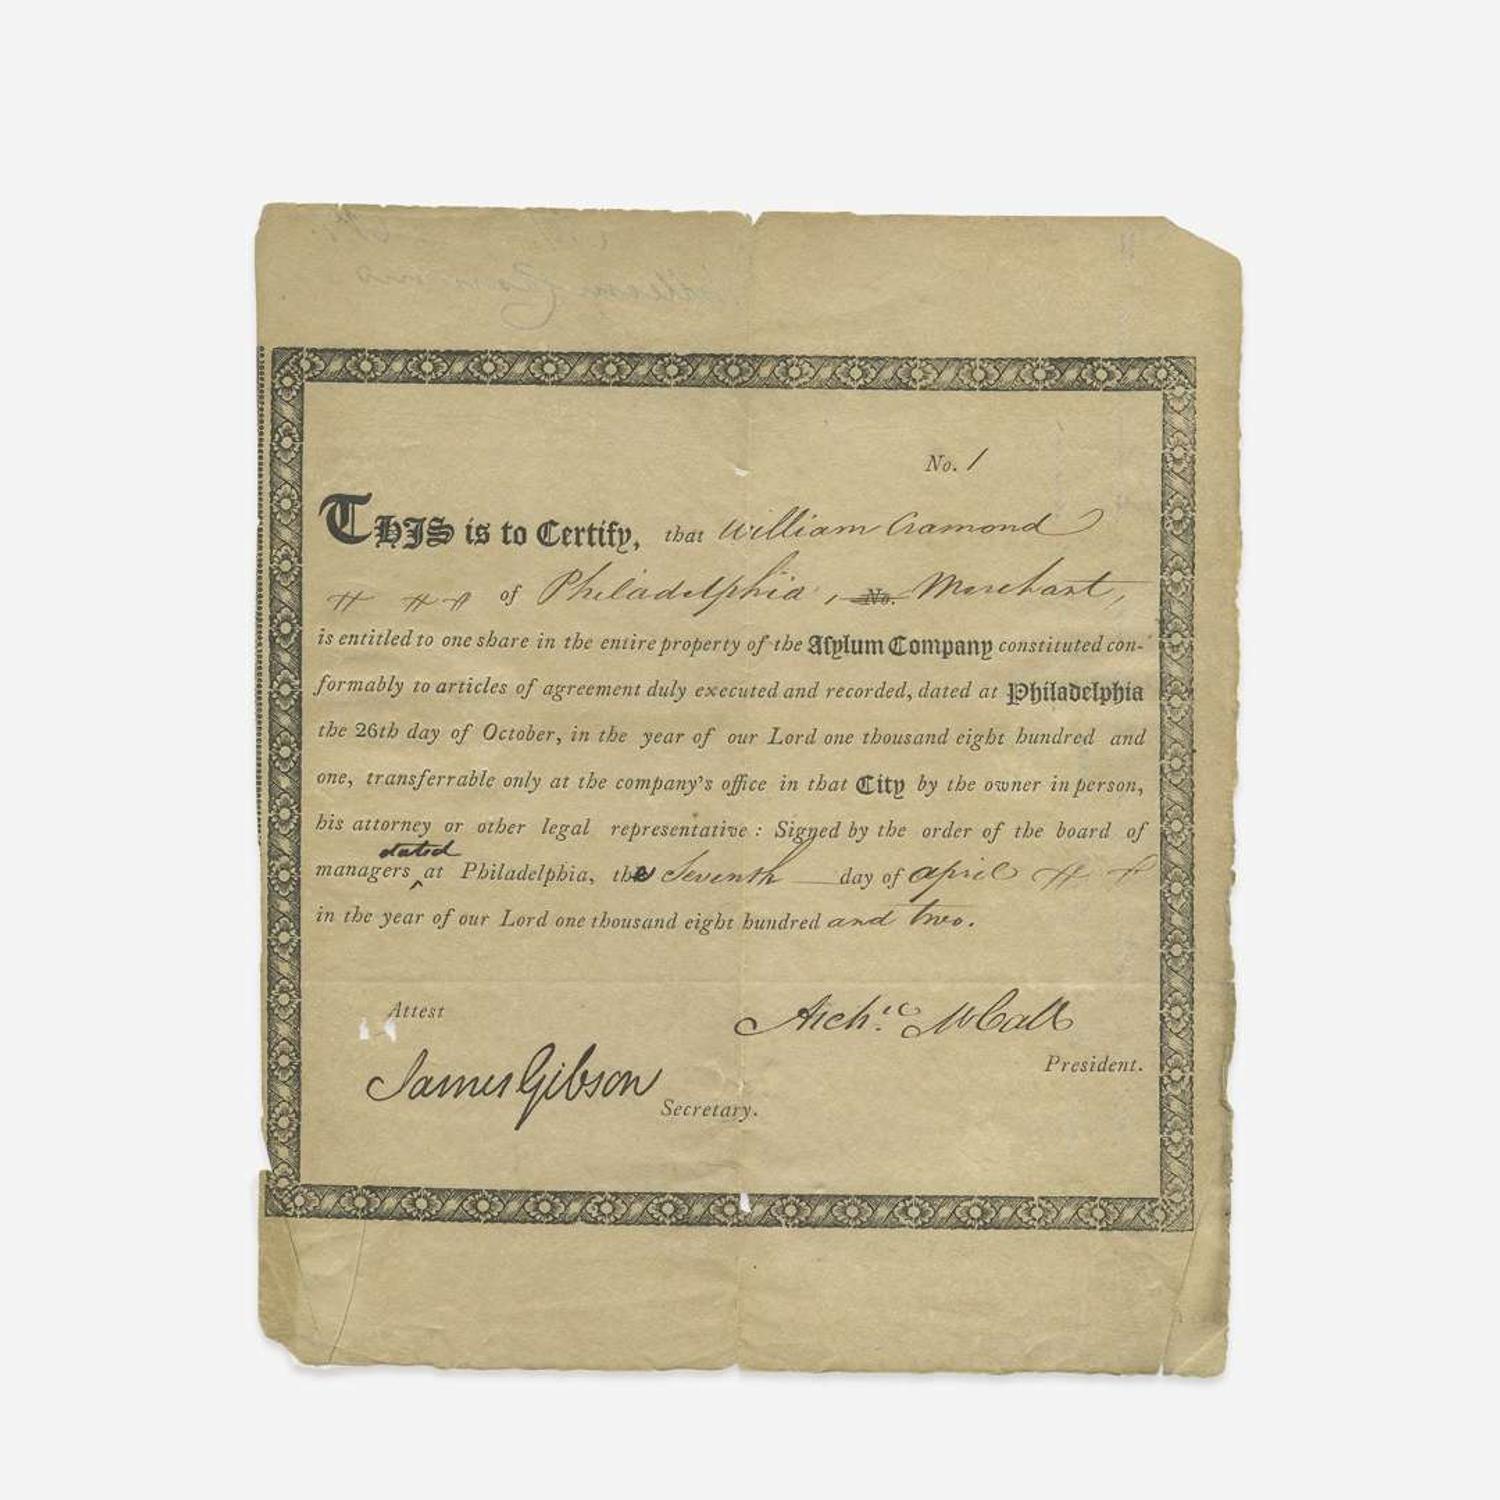 No. 1
THIS is to Certify, that William Cramond
of Philadelphia, No. Merchant,
is entitled to one share in the entire property of the Asylum Company constituted con-
formably to articles of agreement duly executed and recorded, dated at Philadelphia
the 26th day of October, in the year of our Lord one thousand eight hundred and
one, transferrable only at the company's office in that City by the owner in person,
his attorney or other legal representative: Signed by the order of the board of
dated
managers ‸ at Philadelphia, the Seventh day of april
in the year of our Lord one thousand eight hundred and two.
Attest
Arch.d McCall
President.
James Gibson
Secretary.